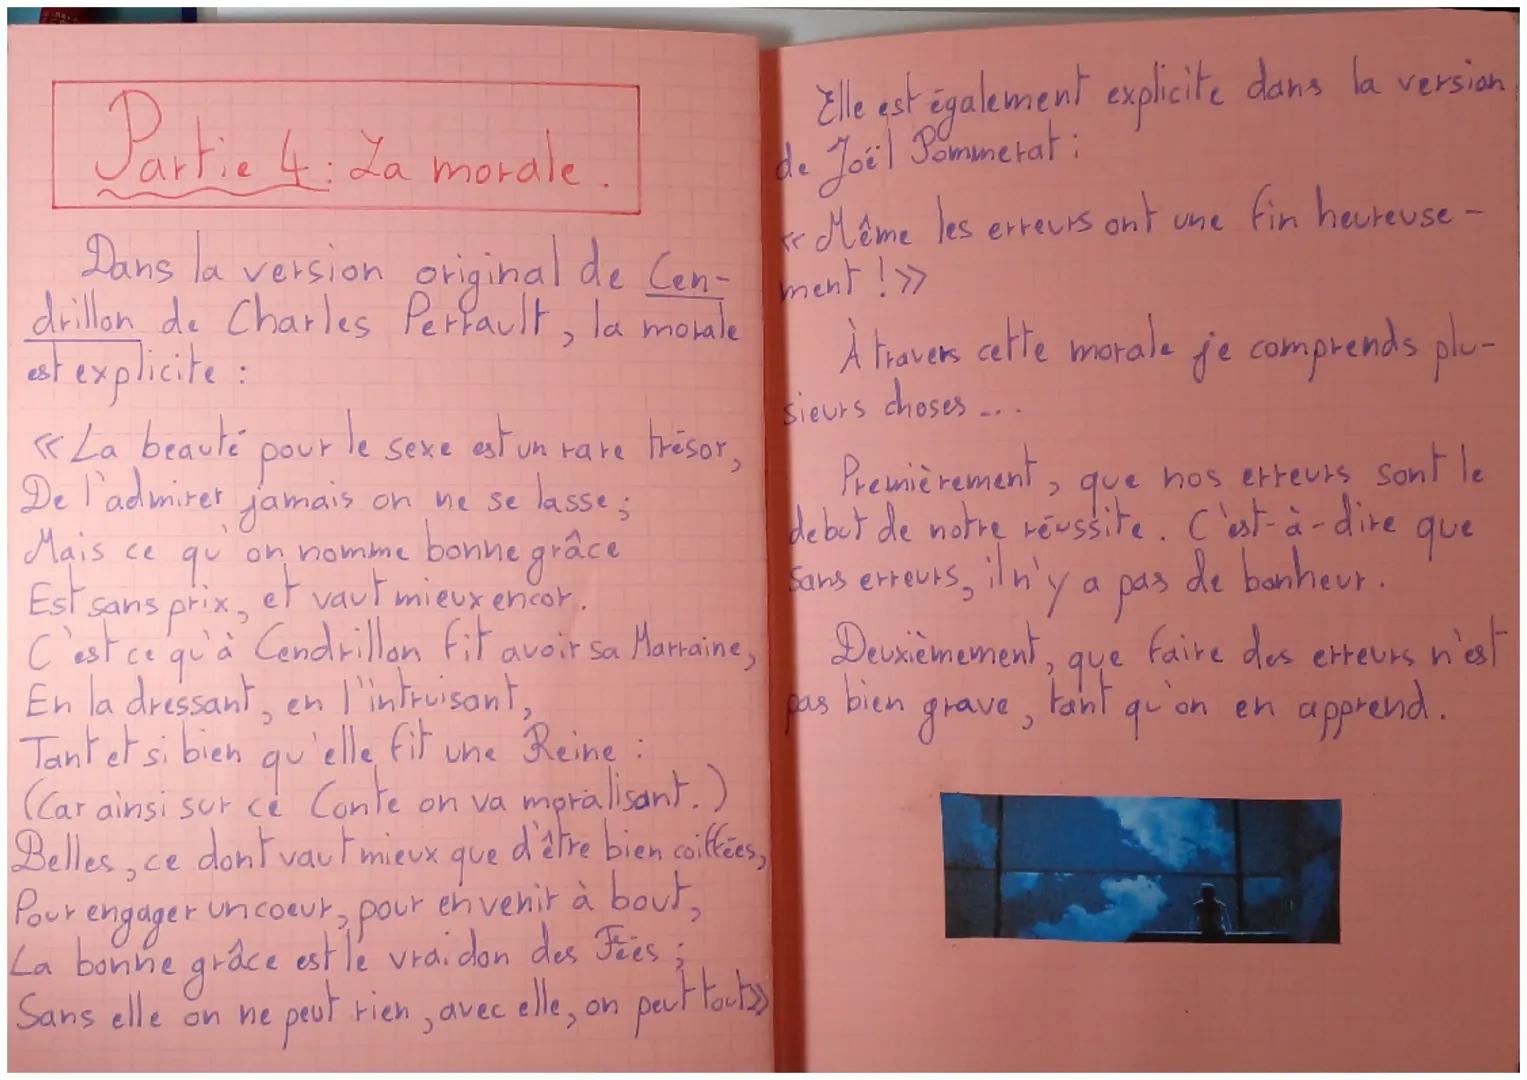 Partie 4 : La morale.
Dans la version original de Cen-
drillon de Charles Perrault, la morale
est explicite :
« La beauté pour le sexe est un rare trésor,
De l'admirer jamais on ne se lasse ;
Mais ce qu'on nomme bonne grâce
Est sans prix, et vaut mieux encor.
C'est ce qu'à Cendrillon fit avoir sa Marraine,
En la dressant, en l'intruisant,
Tant et si bien qu'elle fit une Reine :
(Car ainsi sur ce Conte on va moralisant.)
Belles, ce dont vaut mieux que d'être bien coiffées,
Pour engager un coeur, pour en venir à bout,
La bonne grâce est le vrai don des Fées ;
Sans elle on ne peut rien, avec elle, on peut tout»
Elle est également explicite dans la version
de Joël Pommerat :
« Même les erreurs ont une fin heureuse-
ment ! »
À travers cette morale je comprends plu-
sieurs choses ...
Premièrement, que nos erreurs sont le
debut de notre réussite. C'est-à-dire que
sans erreurs, il n'y a pas de bonheur.
Deuxièmement, que faire des erreurs n'est
pas bien grave, tant qu'on en apprend.